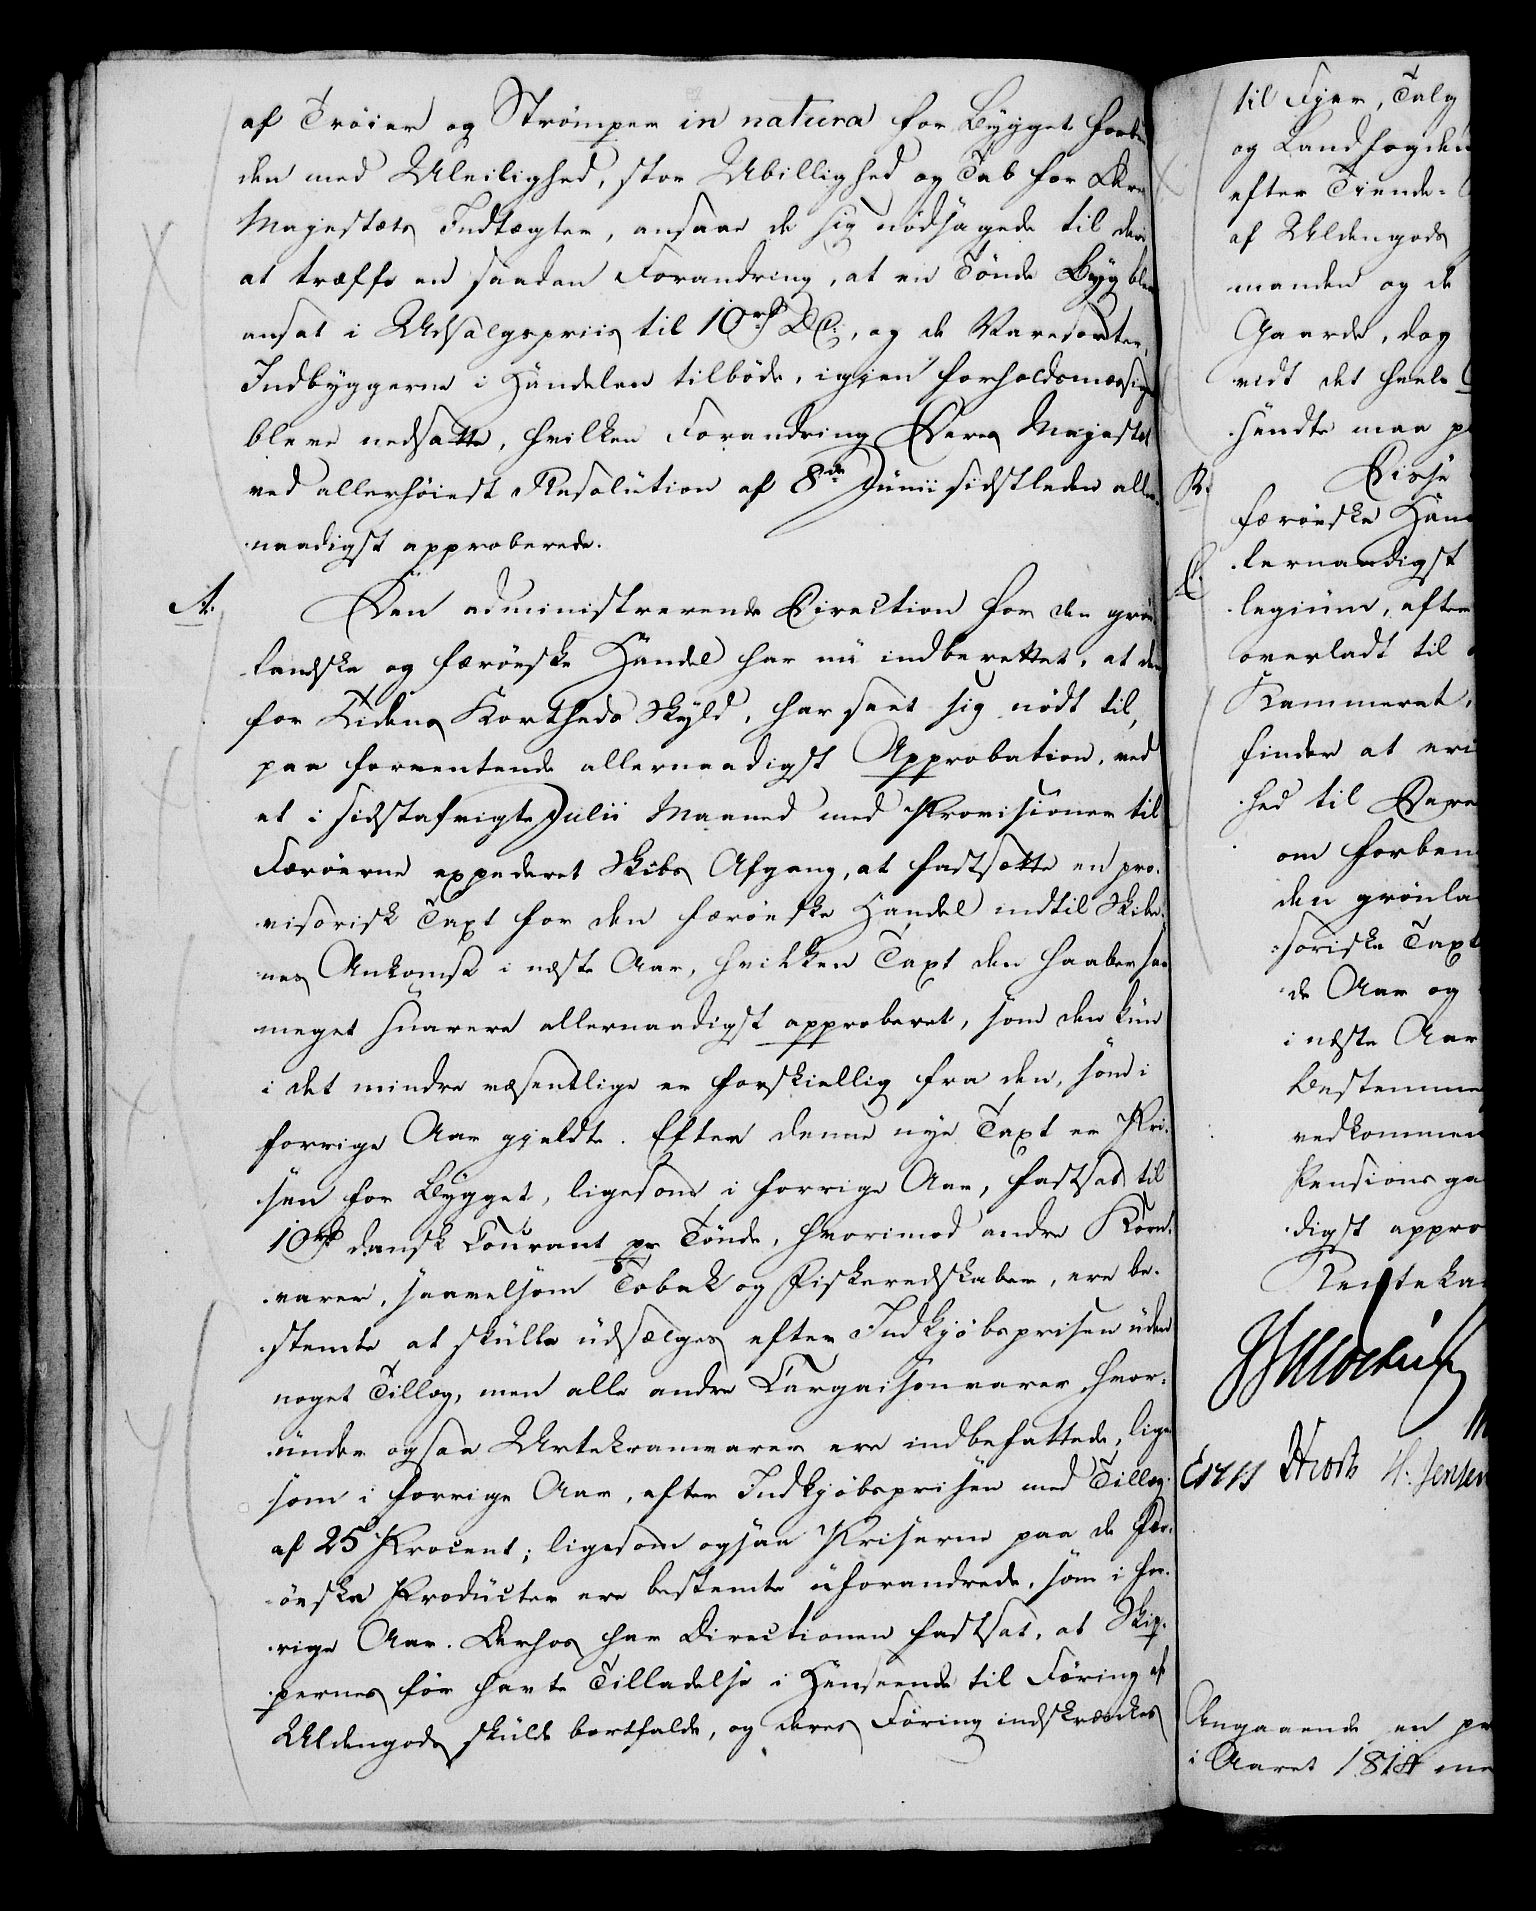 af Trøier og Strømper in natura for Bygget forbun
den med Uleilighed, stor Ubillighed og Tab for Deres
Majestæts Indtægter, ansaae de sig nødsagede til deri
at træffe en saadan Forandring, at en Tønde Byg blev
ansat i Udsalgspriis til 10 rd D.C., og de Varesorter,
Indbyggerne i Handelen tilbøde, igjen forholdsmæssig
bleve nedsatte, hvilken Forandring Deres Majestæt
ved allerhøiest Resolution af 8de Junii sidstleden aller-
naadigst approberede.
A. Den administrerende Direction for den grøn
landske og færøeske Handel har nu indberettet, at den
for Tidens Kortheds Skyld, har seet sig nødt til,
paa forventende allernaadigst Approbation, ved
et i sidstafvigte Julii Maaned med Provisioner til
Færøerne expederet Skibs Afgang, at fastsætte en pro-
visorisk Taxt for den færøeske Handel indtil Skibe-
nes Ankomst i næste Aar, hvilken Taxt den haaber saa
meget snarere allernaadigst approberet, som den kun
i det mindre væsentlige er forskiellig fra den, som i
forrige Aar gjeldte. Efter denne nye Taxt er Pri-
sen for Bygget, ligesom i forrige Aar, fastsat til
10 rd dansk Courant pr Tønde, hvorimod andre Korn-
varer, saavelsom Tobak og Fiskeredskaber, ere be-
stemte at skulle udsælges efter Indkjøbsprisen uden
noget Tillæg, men alle andre Cargaisonvarer hvor-
under ogsaa Urtekramvarer ere indbefattede, lige
som i forrige Aar, efter Indkjøbsprisen med Tillæg
af 25 Procent; ligesom ogsaa Priserne paa de fær-
øeske Producter ere bestemte uforandrede, som i for-
rige Aar. Derhos har Directionen fastsat, at Skip-
pernes før havte Tilladelse i Henseende til Føring af
Uldengods skulde bortfalde, og deres Føring indskrænkes
til Fjer, Talg
og Landfogden
efter Tiende-
af Uldengods
manden og de
Gaarde, dog
vidt det heele
sendte maa
R. Disse
færøeske Han
C. lernaadigst
legium, efter
overladt til
Kammeret,
finder at eri
hed til Deres
om forben
den grønla
soriske Taxt
de Aar og
i næste Aar
Bestemme
vedkommen
Pensions ga
digst appro
Renteka
Frost H. Jensen
Angaaende en pr
i Aaret 1814 me